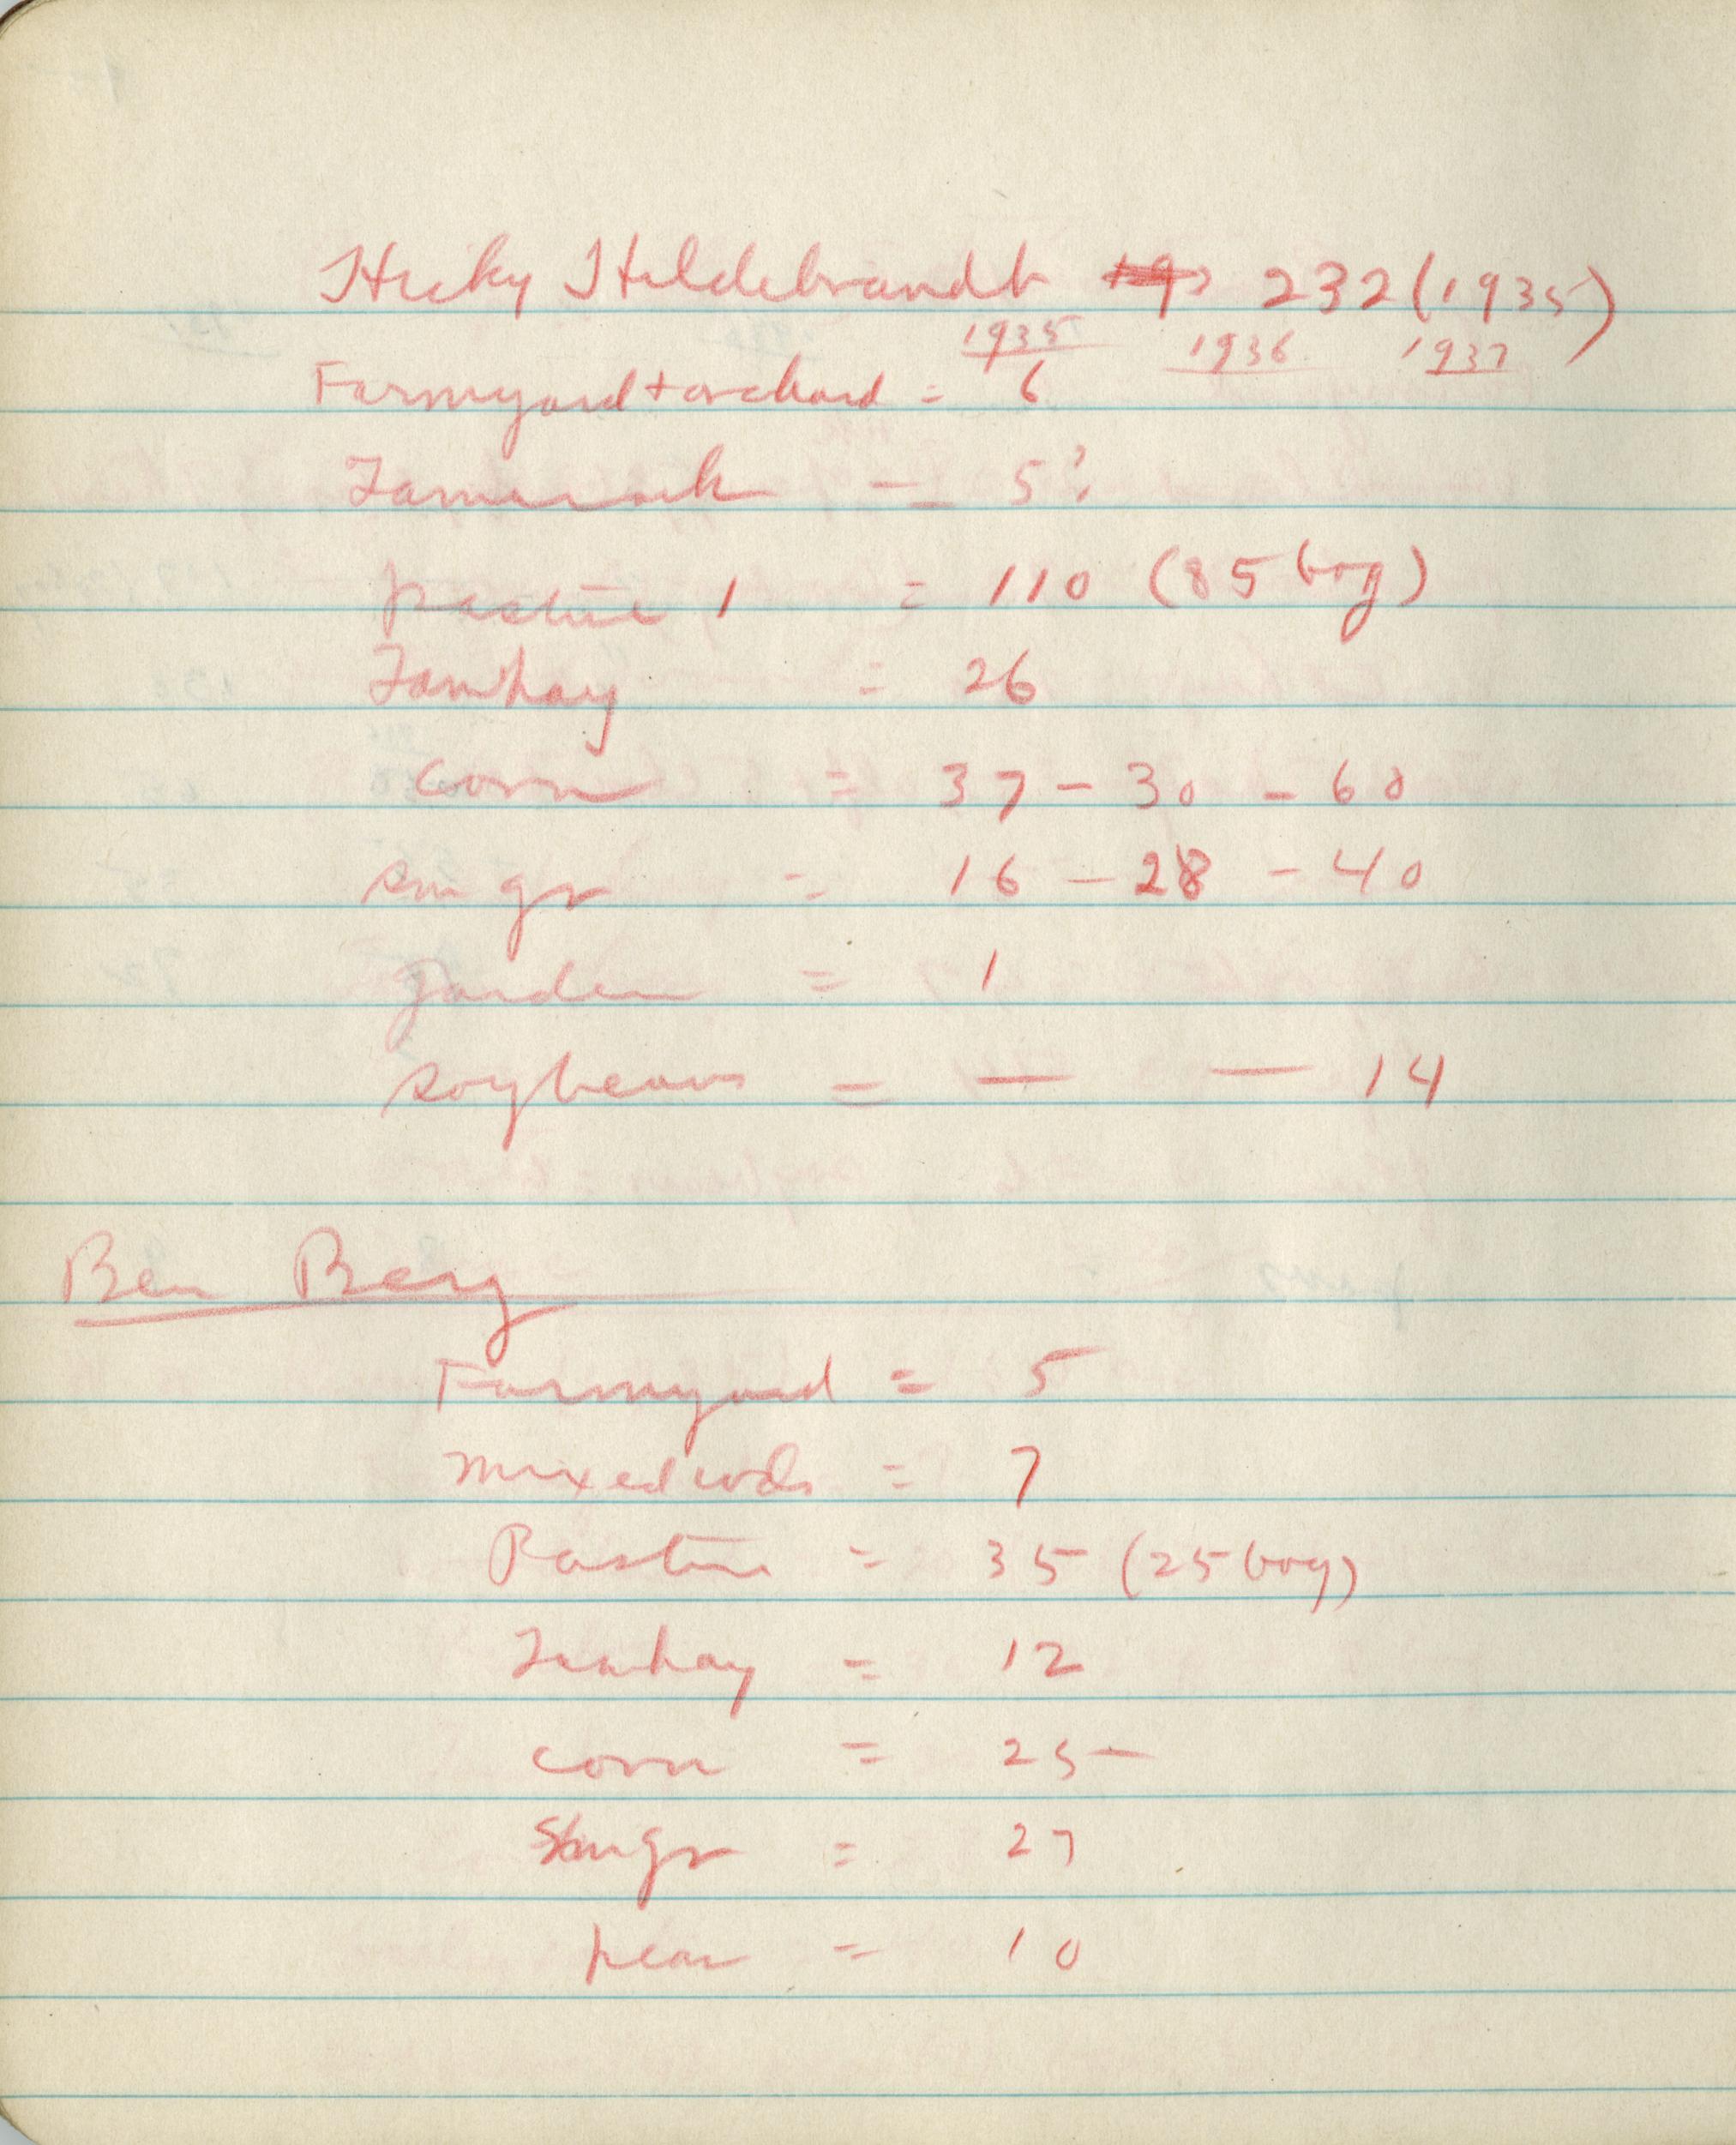 Hicky Hildebrandt 232 (1935)
1935 1936 1937
Farmyard + orchard = 6
Tamarack - = 5?
pasture 1 = 110 (85 bog)
Tamhay = 26
corn = 37 - 30 - 60
sm gr = 16 - 28 - 40
garden = 1
soybeans = — — 14
Ben Berg
Farmyard = 5
mixed wds = 7
Pasture = 35 (25 bog)
Tamhay = 12
corn = 25
Sm gr = 27
peas = 10